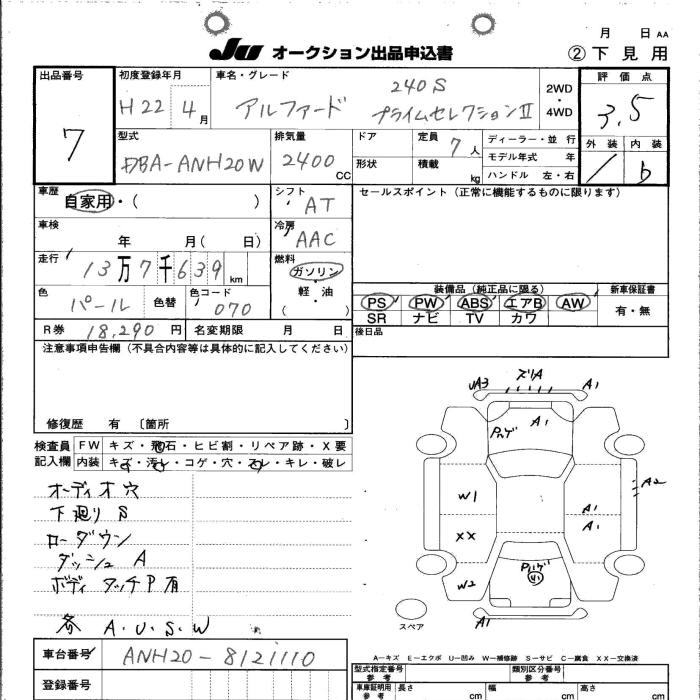 月 日 AA
JU オークション出品申込書 ②下見用
出品番号 初度登録年月 車名・グレード 評価点
7 H22 4月 アルファード 240S プライムセレクションⅡ 2WD・4WD 3.5
型式 排気量 ドア 定員 7人 ディーラー・並行 外装 内装
DBA-ANH20W 2400CC 形状 積載 kg モデル年式 年 b
ハンドル 左・右
車歴 シフト セールスポイント(正常に機能するものに限ります)
自家用・( ) AT
車検 冷房
年 月( 日) AAC
走行 燃料
13万7千639km ガソリン・軽・油 ( )
色 色替 色コード 装備品(純正品に限る) 新車保証書
パール 070 PS PW ABS エアB AW 有・無
SR ナビ TV カワ
R券 18,290円 名変期限 月 日 後日品
注意事項申告欄(不具合内容等は具体的に記入してください)
修復歴 有 〔箇所 〕
検査員 FW キズ・飛石・ヒビ割・リペア跡・X要
記入欄 内装 キズ・汚レ・コゲ・穴・スレ・キレ・破レ
オーディオ穴
下廻りS
ローダウン
ダッシュA
ボディ タッチP有
各 A.U.S.W
UA3 ズリA A1
A1
W1 A1 A2
XX A1
W2
A1
スペア
A-キズ E-エクボ U-凹み W-補修跡 S-サビ C-腐食 XX-交換済
車台番号 ANH20-8121110
登録番号
型式指定番号 参考 類別区分番号 参考
車庫証明用 参考 長さ cm 幅 cm 高さ cm